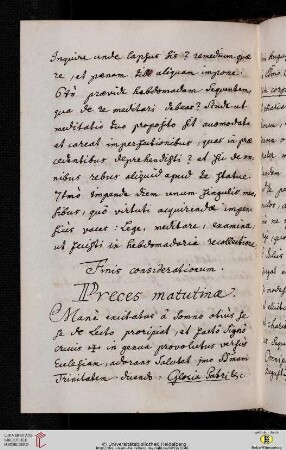 Inquire unde lapsus sis? remedium quæ
re, et pœnam tibi aliquam impone.
6tò prævide hebdomadam sequentem
qua de re meditari debeas? Stude ut
meditatio tuo proposito sit accomodata
et careat imperfectionibus, quas in præ
cedentibus deprehendisti? et sic de om
nibus rebus aliquid apud te statue
7mò impende diem unum singulis men
sibus, quo virtuti acquirendæ impen
sius vaces. Lege, meditare, examina
ut fecisti in hebdomadaria recollectione.
Finis considerationum.
Preces matutinæ.
Manè excitatus à somno otiùs se
se de lecto proripiat, et facto signo
crucis ✠ in genua provolutus versus
Ecclesiam, adorans salutat 1mo
Trinitatem dicendo. Gloria Patri &c
UNIVERSITÄTS-
BIBLIOTHEK
HEIDELBERG
© Universitätsbibliothek Heidelberg